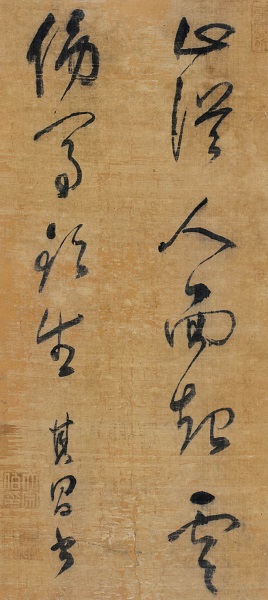 山從人面起雲
傍馬頭生其昌書